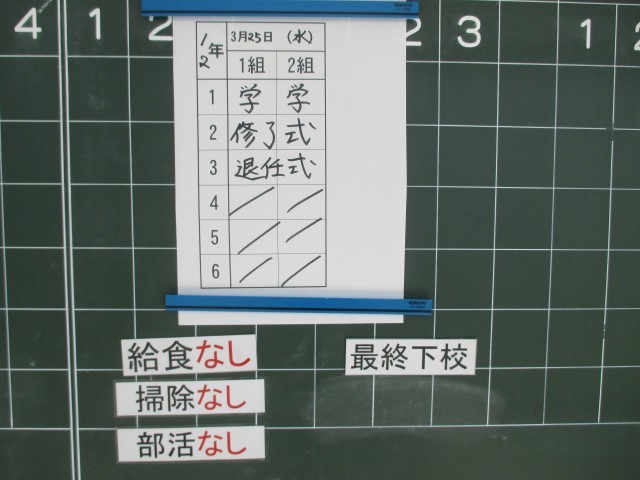 4 1 2 2 3 1 2
1/2年 3月25日 (水)
1組 2組
1 学 学
2 修了式
3 退任式
4
5
6
給食なし 最終下校
掃除なし
部活なし